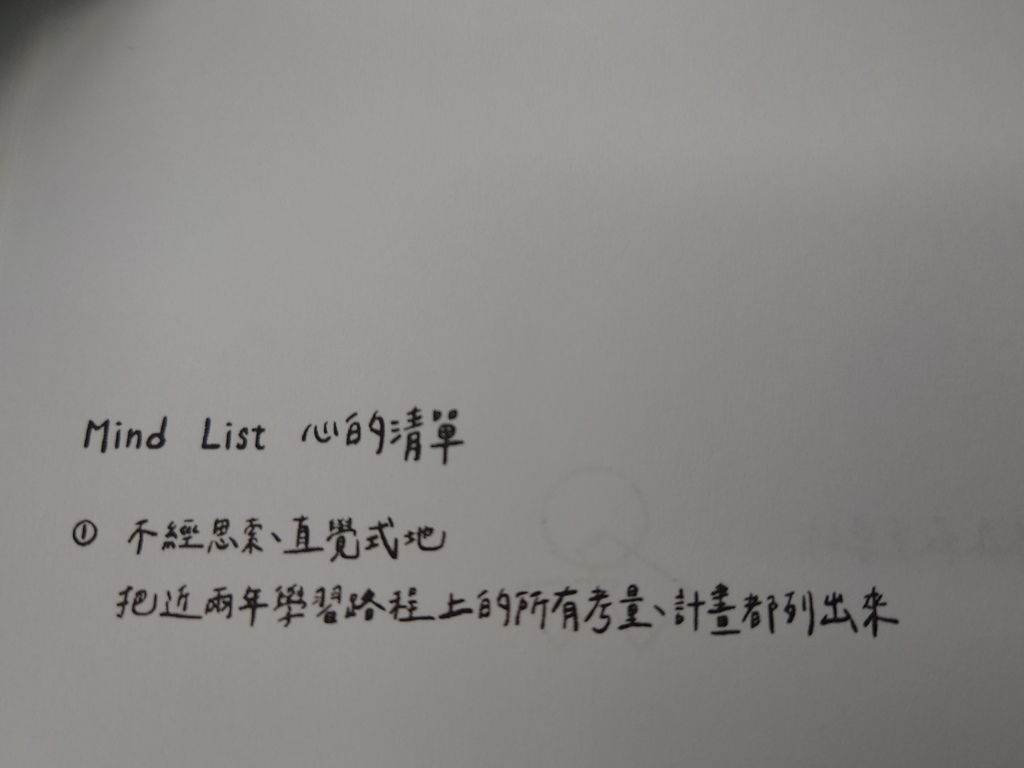 Mind List 心的清單
① 不經思索、直覺式地
把近兩年學習路程上的所有考量、計畫都列出來